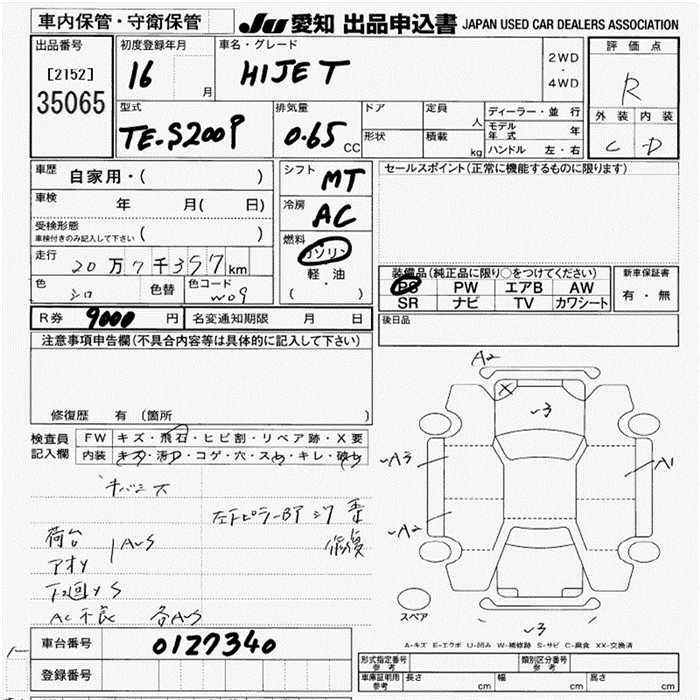 車内保管・守衛保管
JU 愛知 出品申込書 JAPAN USED CAR DEALERS ASSOCIATION
出品番号
[2152]
35065
初度登録年月
16 月
車名・グレード
HIJET
2WD
・
4WD
評価点
R
外装 内装
C D
型式
TE-S200P
排気量
0.65 CC
ドア
形状
定員 人
積載 kg
ディーラー・並行
モデル年式 年
ハンドル 左・右
車歴
自家用・( )
車検 年 月( 日)
受検形態
車検付きのみ記入して下さい ( )
走行
20万7千357km
色 シロ
色替
色コード W09
シフト MT
冷房 AC
燃料
ガソリン
・
軽・油
( )
セールスポイント(正常に機能するものに限ります)
装備品(純正品に限り○をつけてください)
PS PW エアB AW
SR ナビ TV カワシート
新車保証書
有・無
後日品
R券 9000 円
名変通知期限 月 日
注意事項申告欄(不具合内容等は具体的に記入して下さい)
修復歴 有 (箇所 )
検査員
記入欄
FW キズ・飛石・ヒビ割・リペア跡・X要
内装 キズ・汚レ・コゲ・穴・スレ・キレ・破レ
荷台
アオリ
AUS
下廻りS
AC不良 各AUS
修復
A2
X
A1
スペア
A-キズ E-エクボ U-凹み W-補修跡 S-サビ C-腐食 XX-交換済
車台番号 0127340
登録番号
形式指定番号
参考
類別区分番号
参考
車庫証明用
参考
長さ cm 幅 cm 高さ cm